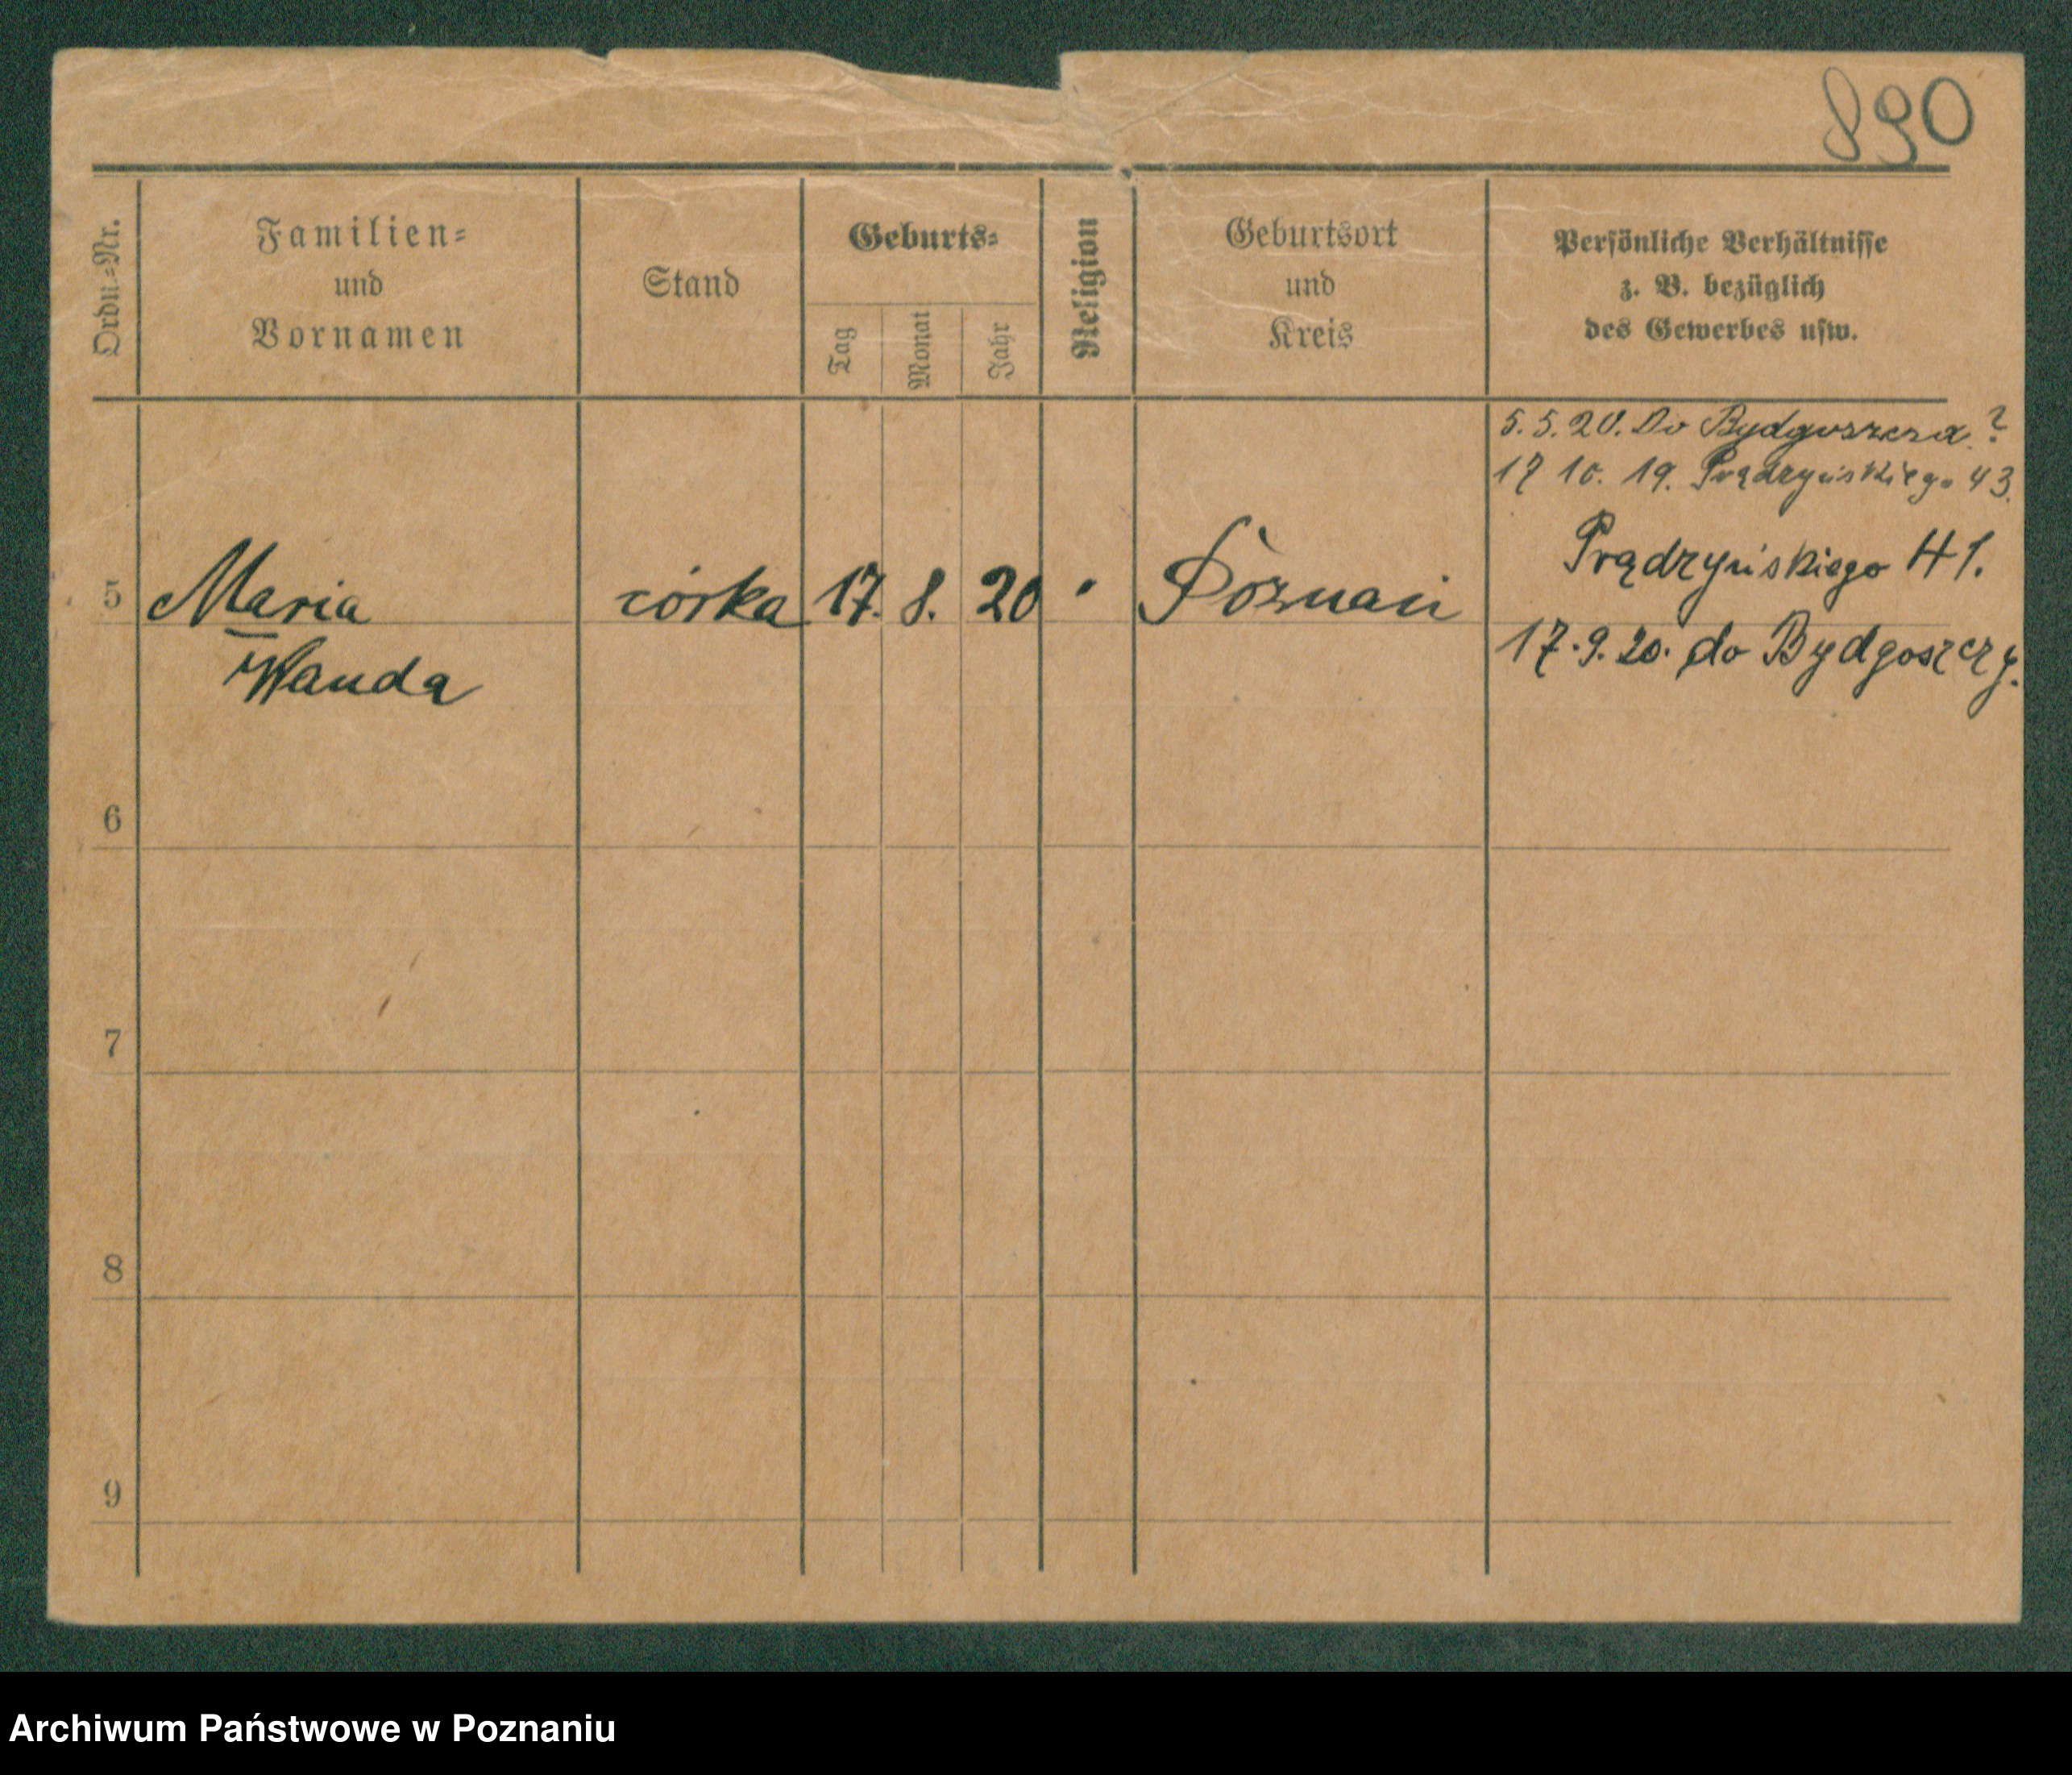 890
Ordn.=Nr.
Familien=
und
Vornamen
Stand
Geburts=
Tag
Monat
Jahr
Religion
Geburtsort
und
Kreis
Persönliche Verhältnisse
z. B. bezüglich
des Gewerbes usw.
5.5.20. Do Bydgoszcza ?
17 10. 19. Prądzyńskiego 43.
Prądzyńskiego 41.
5 Maria córka 17. 8. 20 " Poznań
Wanda
17.9.20. do Bydgoszczy.
6
7
8
9
Archiwum Państwowe w Poznaniu